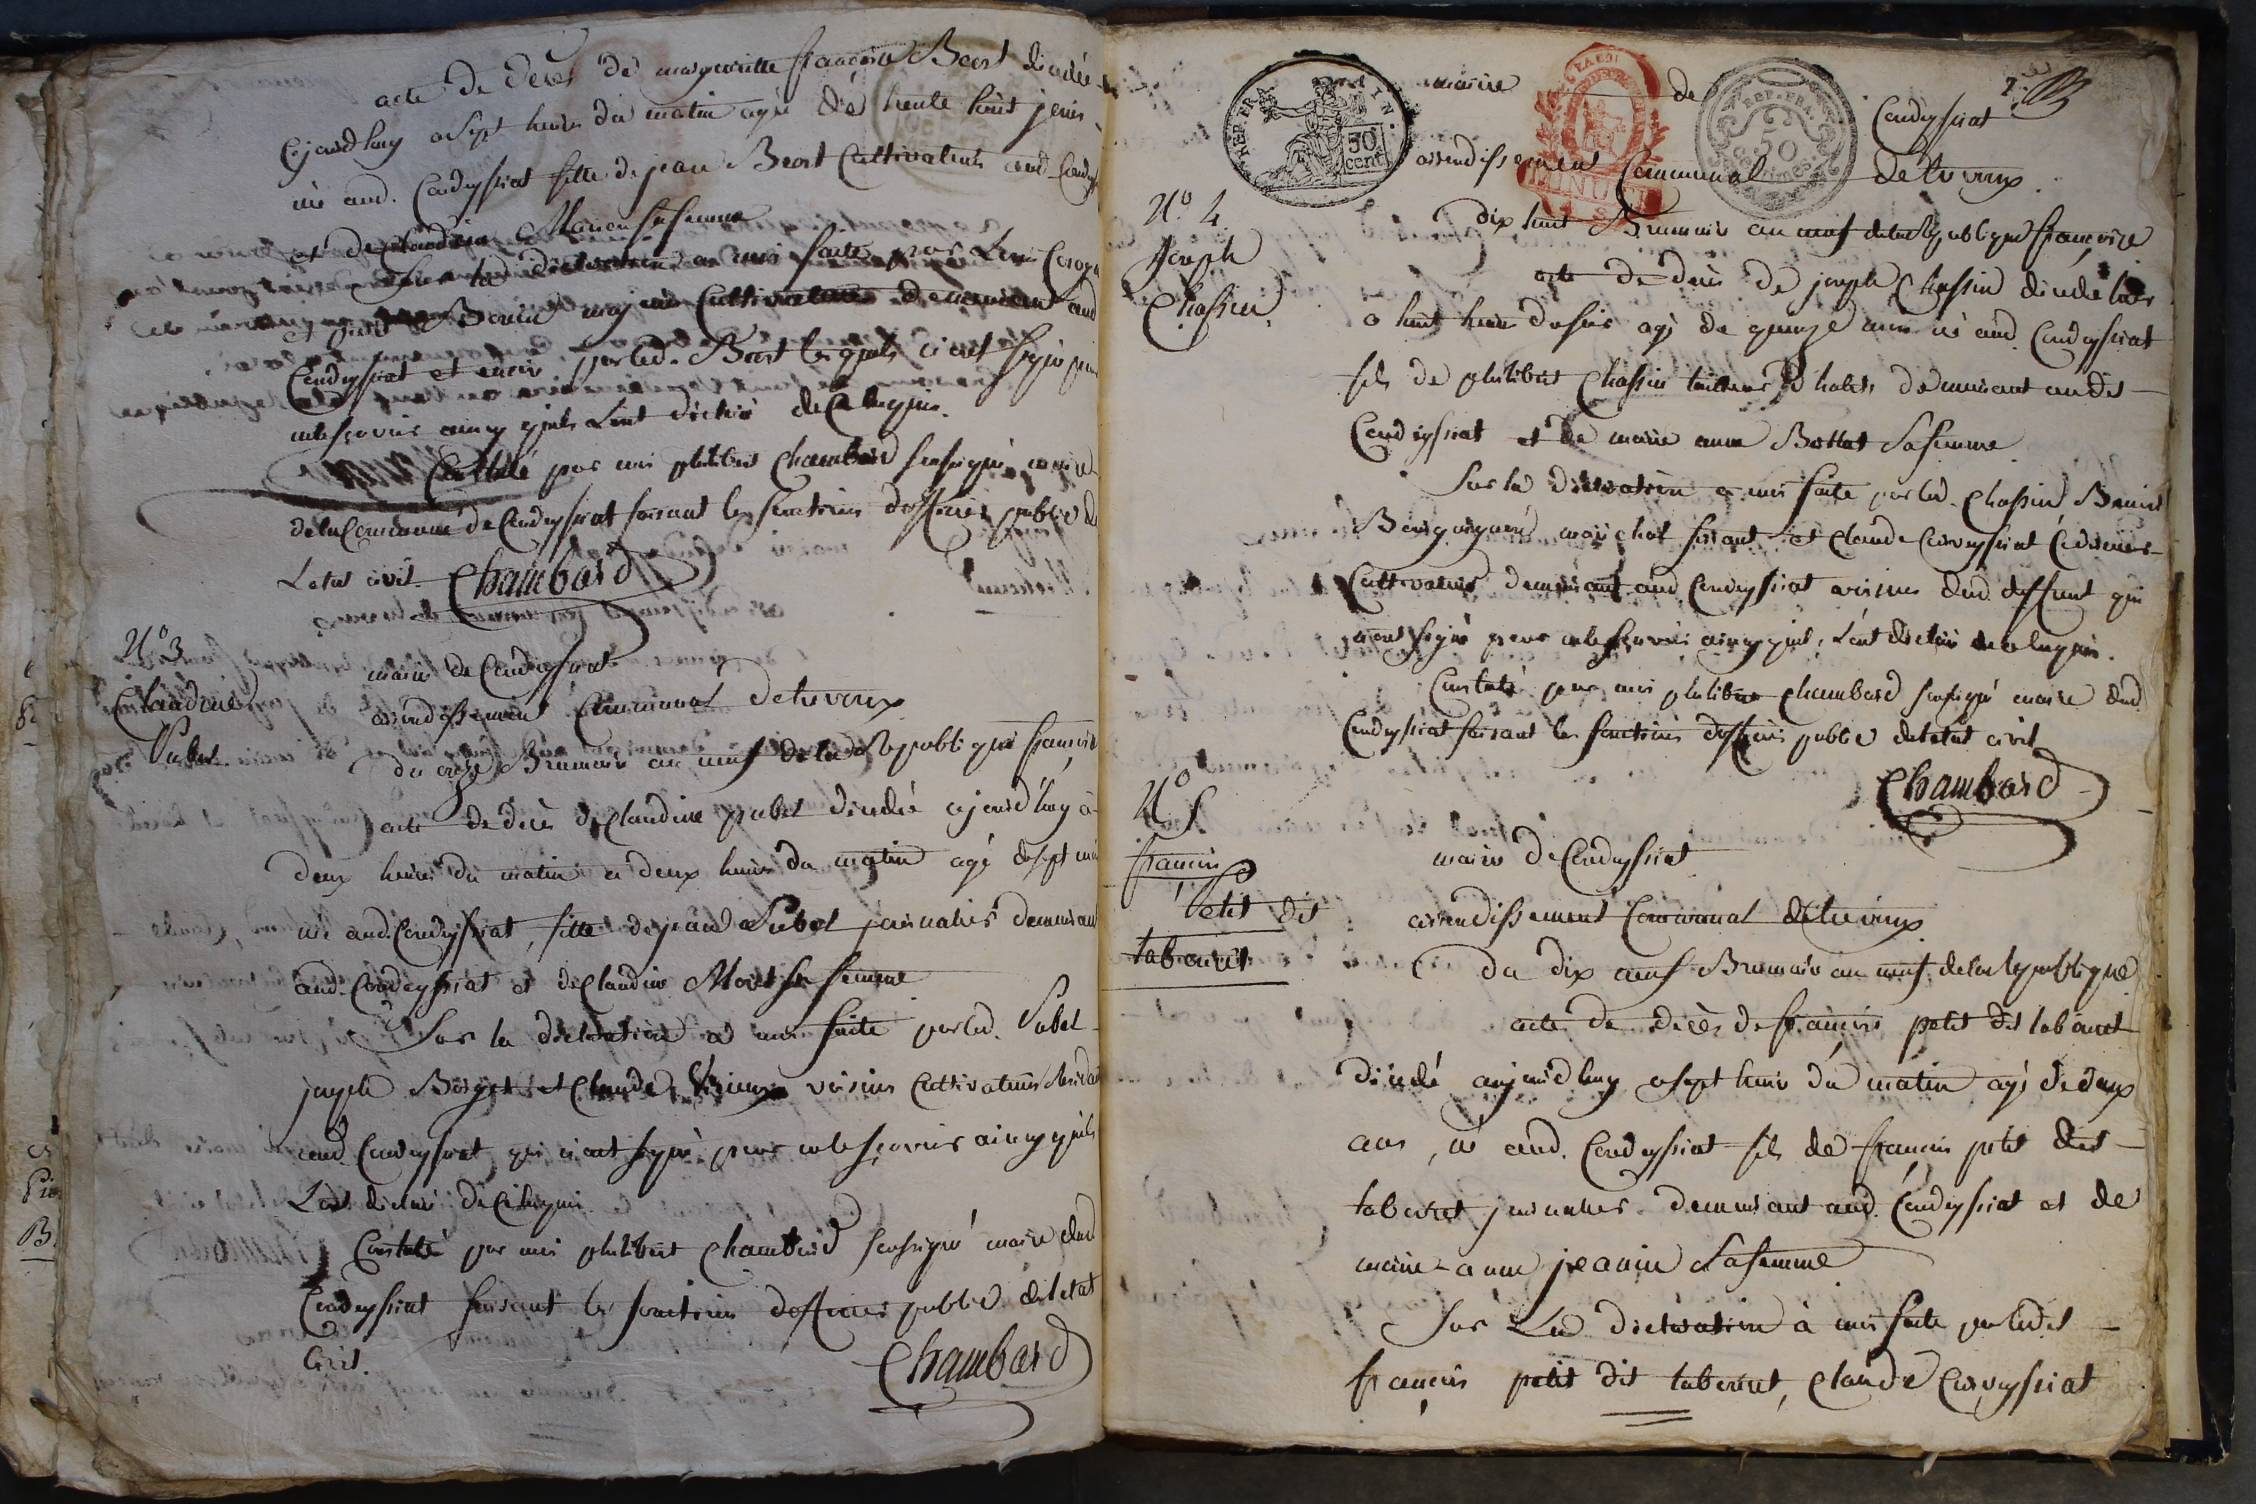 acte de décès de margueritte françoise Beost décédée
ajourd'huy a sept heures du matin agée de trente huit jours
née aud. Condeyssiat fille de jean Beost Cultivateur aud. Condeyssiat
et de Claudine Marion sa femme
Sur la déclaration a moi faite par Louis
et Benoit majeur Cultivateurs demeurant aud
Condeyssiat et encore par led. Beost lesquels n'ont signé pour
ne le sçavoir ainsy qu'ils l'ont déclaré de ce enquis.
Constaté par moi philibert Chambard soussigné maire
de la Commune de Condeyssiat faisant les fonctions d'officier public de
L'état civil. Chambard
N° 3
Claudine
Pubet.
mairie de Condeyssiat
arrondissement Communal de trevoux
du onze Brumaire an neuf de la Republique françoise
acte de décès de Claudine pubet décédée ajourd'huy à
deux heures du matin a deux heures du matin agé de sept
née aud. Condeyssiat, fille de jean Pubet journalier demeurant
aud. Condeyssiat et de Claudine Moret sa femme
Sur la déclaration à moi faite par led. Pubet
joseph Borget et Claude voisins Cultivateurs
aud. Condeyssiat qui n'ont signé pour ne le sçavoir ainsy qu'ils
L'ont déclaré de Ce enquis.
Constaté par moi philibert Chambard soussigné maire dud
Condeyssiat faisant les fonctions d'officier public de l'état
Civil.
Chambard
2e
REP. FRA. TIMBRE
50 cent
REP. FRA. 50 Centimes
MINUTE
mairie de Condeyssiat
arrondissement Communal de trevoux
N° 4
Joseph
Chassin
Dix huit Brumaire an neuf de la Republique françoise
acte de décès de joseph Chassin décédé hier
a huit heures du soir agé de quinze ans né aud. Condeyssiat
fils de philibert Chassin tailleur d'habits demeurant audit
Condeyssiat et de marie anne Bottat sa femme.
Sur la déclaration a moi faite par led. Chassin Benoit
Bourguignon marechal ferant et Claude Corveyssiat Cordonnier
Cultivateur demeurant aud. Condeyssiat voisins dud. deffunt qui
n'ont signé pour ne le sçavoir ainsy qu'ils L'ont déclaré de ce enquis.
Constaté par moi philibert Chambard soussigné maire dud.
Condeyssiat faisant les fonctions d'officier public de l'état civil
Chambard
N° 5
francois
Petit dit
tabouret
mairie de Condeyssiat
arrondissement Communal de trevoux
Du dix neuf Brumaire an neuf de la Republique
acte de décès de françois petit dit tabouret
décédé aujourd'huy a sept heures du matin agé de deux
ans, né aud. Condeyssiat fils de françois petit dit
tabouret journalier demeurant aud. Condeyssiat et de
marie anne jeanin Sa femme
Sur La déclaration à moi faite par ledit
françois petit dit tabouret, Claude Corveyssiat